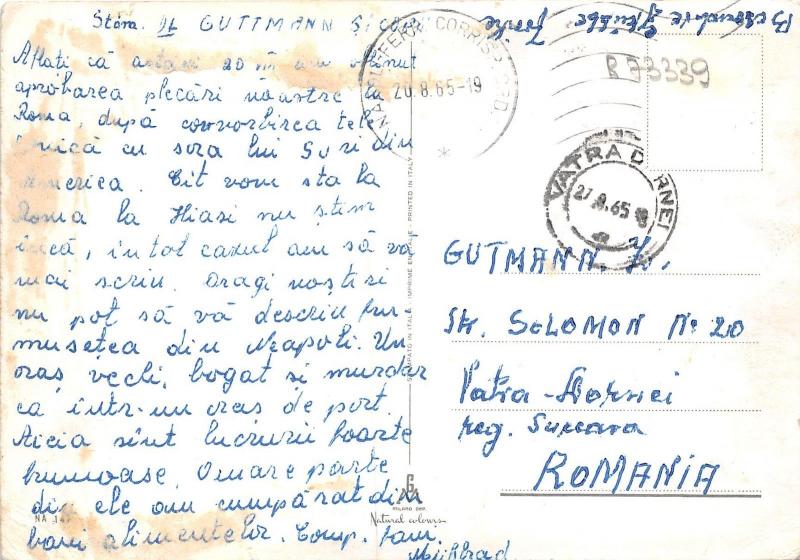 Stim. GUTTMANN ȘI COPII
Aflați că astăzi 20 am obținut
aprobarea plecări noastre la
Roma, după convorbirea tele
fonică cu sora lui Suri din
America. Cît vom sta la
Roma la Hiasi nu știm
încă, în tot cazul am să vă
mai scriu. Dragi noștri
nu pot să vă descriu fru-
musețea din Neapoli. Un
oraș vechi, bogat și murdar
ca într-un oraș de port.
Aicia sînt lucruri foarte
frumoase. O mare parte
din ele am cumpărat din
bani alimentelor. Comp. fam.
NA 14
STAMPATO IN ITALY - IMPRIMÉ EN ITALIE - PRINTED IN ITALY
G
MILANO DEP.
Natural colours
CORRISP.
20.8.65-19
R 73339
VATRA DORNEI
27.8.65
GUTMANN
Str. SOLOMON No 20
Vatra-Dornei
reg. Suceava
ROMANIA